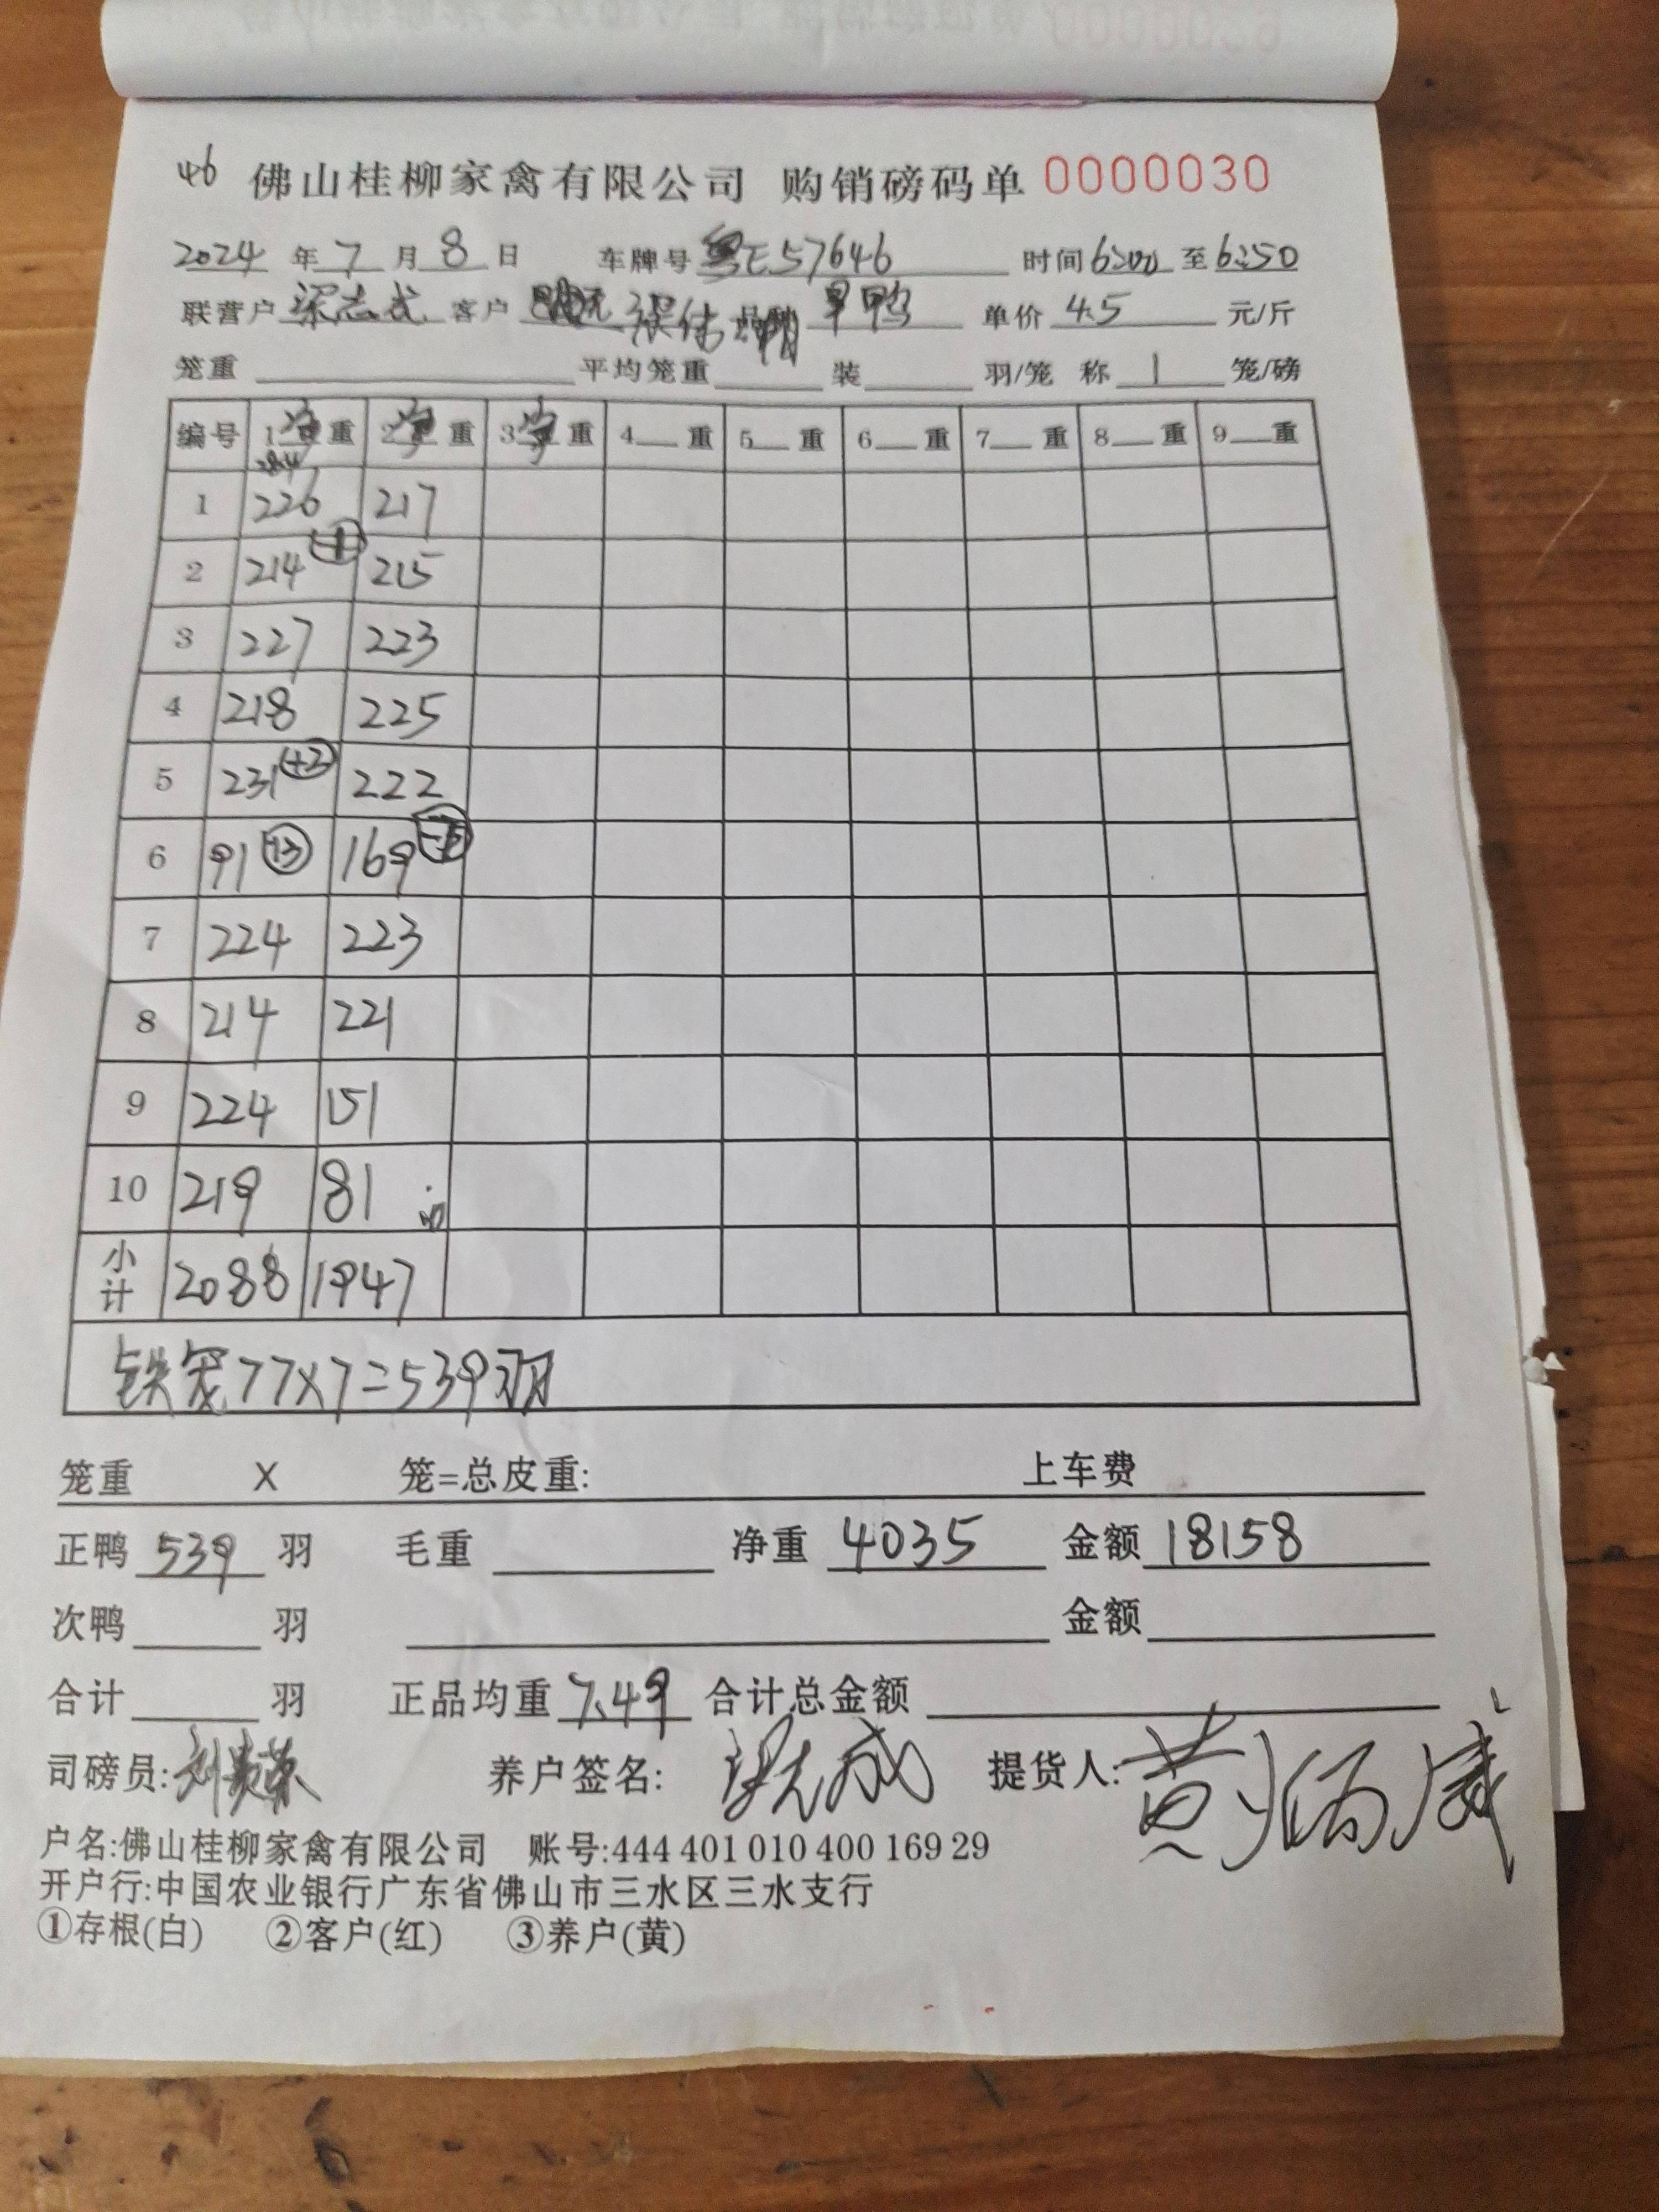 46 佛山桂柳家禽有限公司 购销磅码单 0000030
2024 年 7 月 8 日 车牌号 粤E57646 时间 6:00 至 6:50
联营户 梁志成 客户 单价 4.5 元/斤
笼重 平均笼重 装 羽/笼 称 1 笼/磅
编号 1 重 2 重 3 重 4 重 5 重 6 重 7 重 8 重 9 重
1 226 217
2 214 215
3 227 223
4 218 225
5 231 +3 222
6 91 +3 169
7 224 223
8 214 221
9 224 151
10 219 81
小计 2088 1947
铁笼77x7=539羽
笼重 X 笼=总皮重: 上车费
正鸭 539 羽 毛重 净重 4035 金额 18158
次鸭 羽 金额
合计 羽 正品均重 7.49 合计总金额
司磅员: 养户签名: 提货人: 黄炳威
户名:佛山桂柳家禽有限公司 账号:444 401 010 400 169 29
开户行:中国农业银行广东省佛山市三水区三水支行
①存根(白) ②客户(红) ③养户(黄)